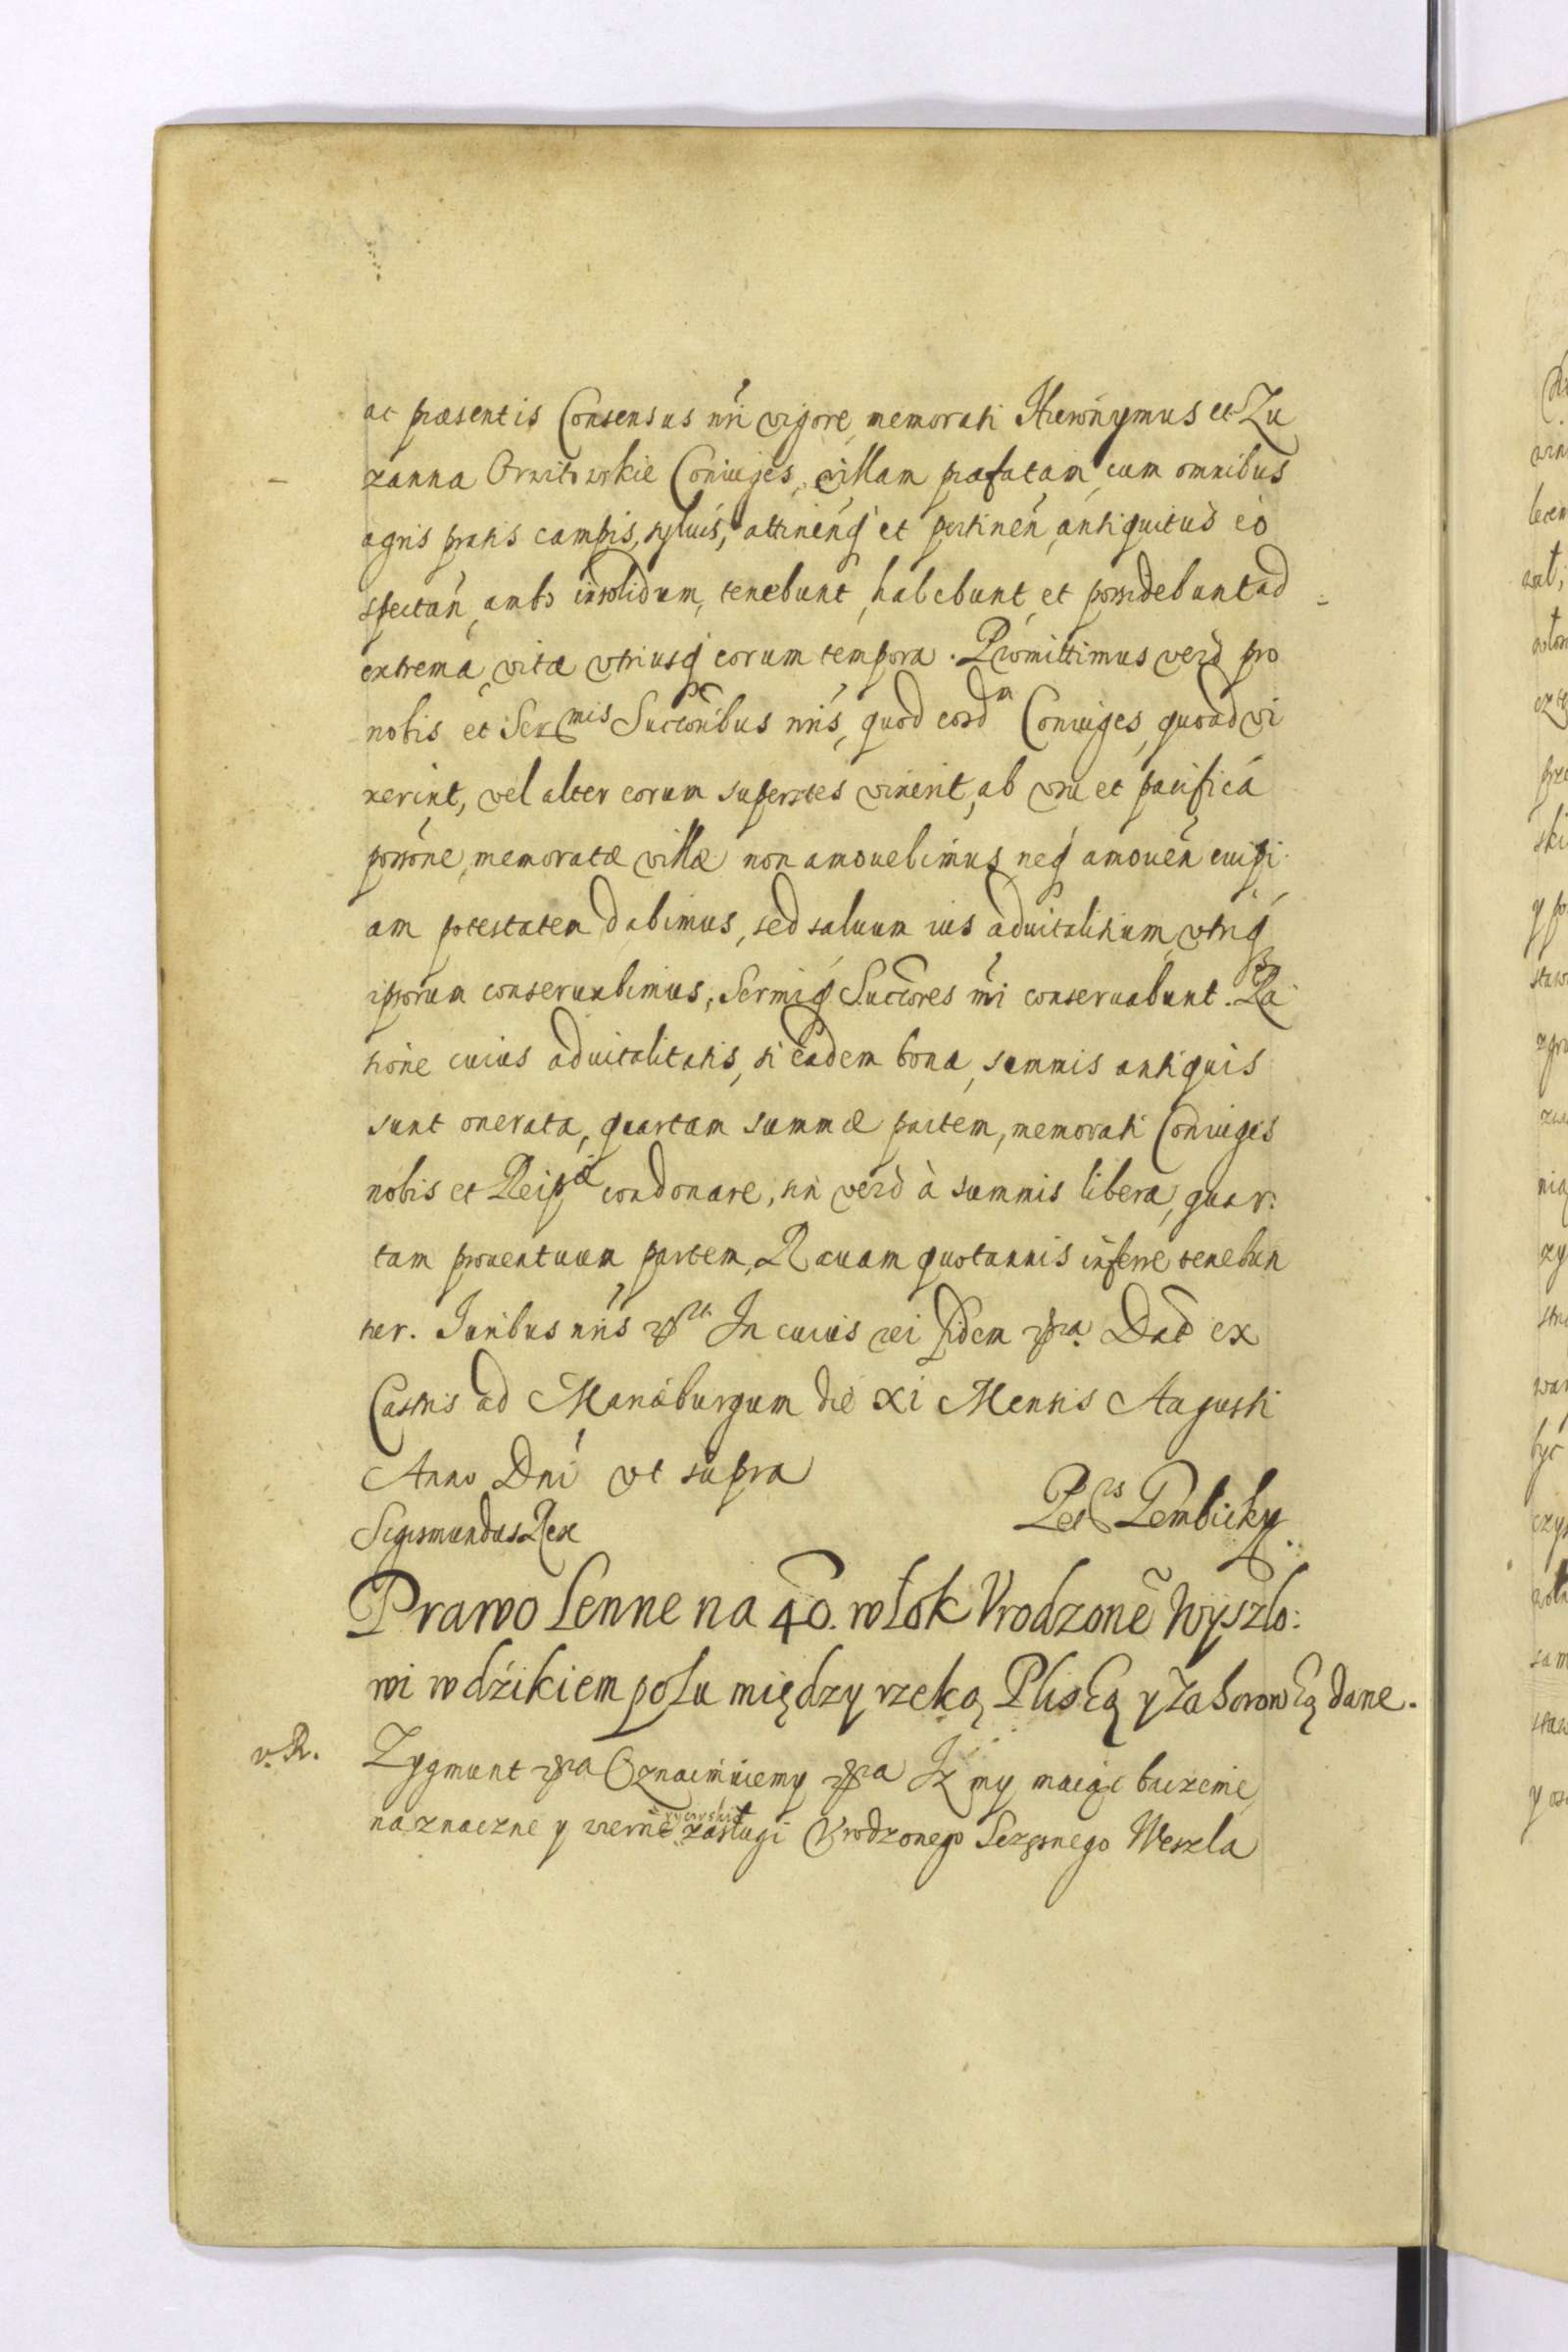 ac præsentis Consensus nri vigore, memorati Hieronymus et Zu
zanna Coniuges, villam præfatam, cum omnibus
agris pratis campis, syluis, attinenq et pertinen, antiquitùs eò
spectan, ambo insolidum, tenebunt, habebunt, et possidebunt ad
extrema vitæ vtriusq eorum tempora. Promittimus verò pro
nobis et Sermis Succoribus nris, quod eosdm Coniuges, quoad vi
xerint, vel alter eorum superstes vixerit, ab vsu et pacifica
possione, memoratæ villæ non amouebimus neq amouen cuipi
am potestatem dabimus, sed saluum ius aduitalitium, vtriq
ipsorum conseruabimus, Sermiq Succores nri conseruabunt. Ra
tione cuius aduitalitatis, si eadem bona, summis antiquis
sunt onerata, quartam summæ partem, memorati Coniuges
nobis et Reipæ condonare, sin verò à summis libera, quar:
tam prouentuum partem, Rauam quotannis inferre tenebun
tur. Iuribus nris In cuius rei fidem Dat ex
Castris ad Mariæburgum die XI Mensis Augusti
Anno Dni vt supra
Sigismundus Rex
Petrs Gembicky
Prawo lenne na 40. włok Vrodzone Wyszlo:
wi w dźikiem polu między rzeką Pliską y Zaborowką dane.
v. R.
Zygmunt Oznaimuiemy Iz my maiąc baczenie
na znaczne y wierne rycerskie zasługi Vrodzonego Sczęsnego Weszla